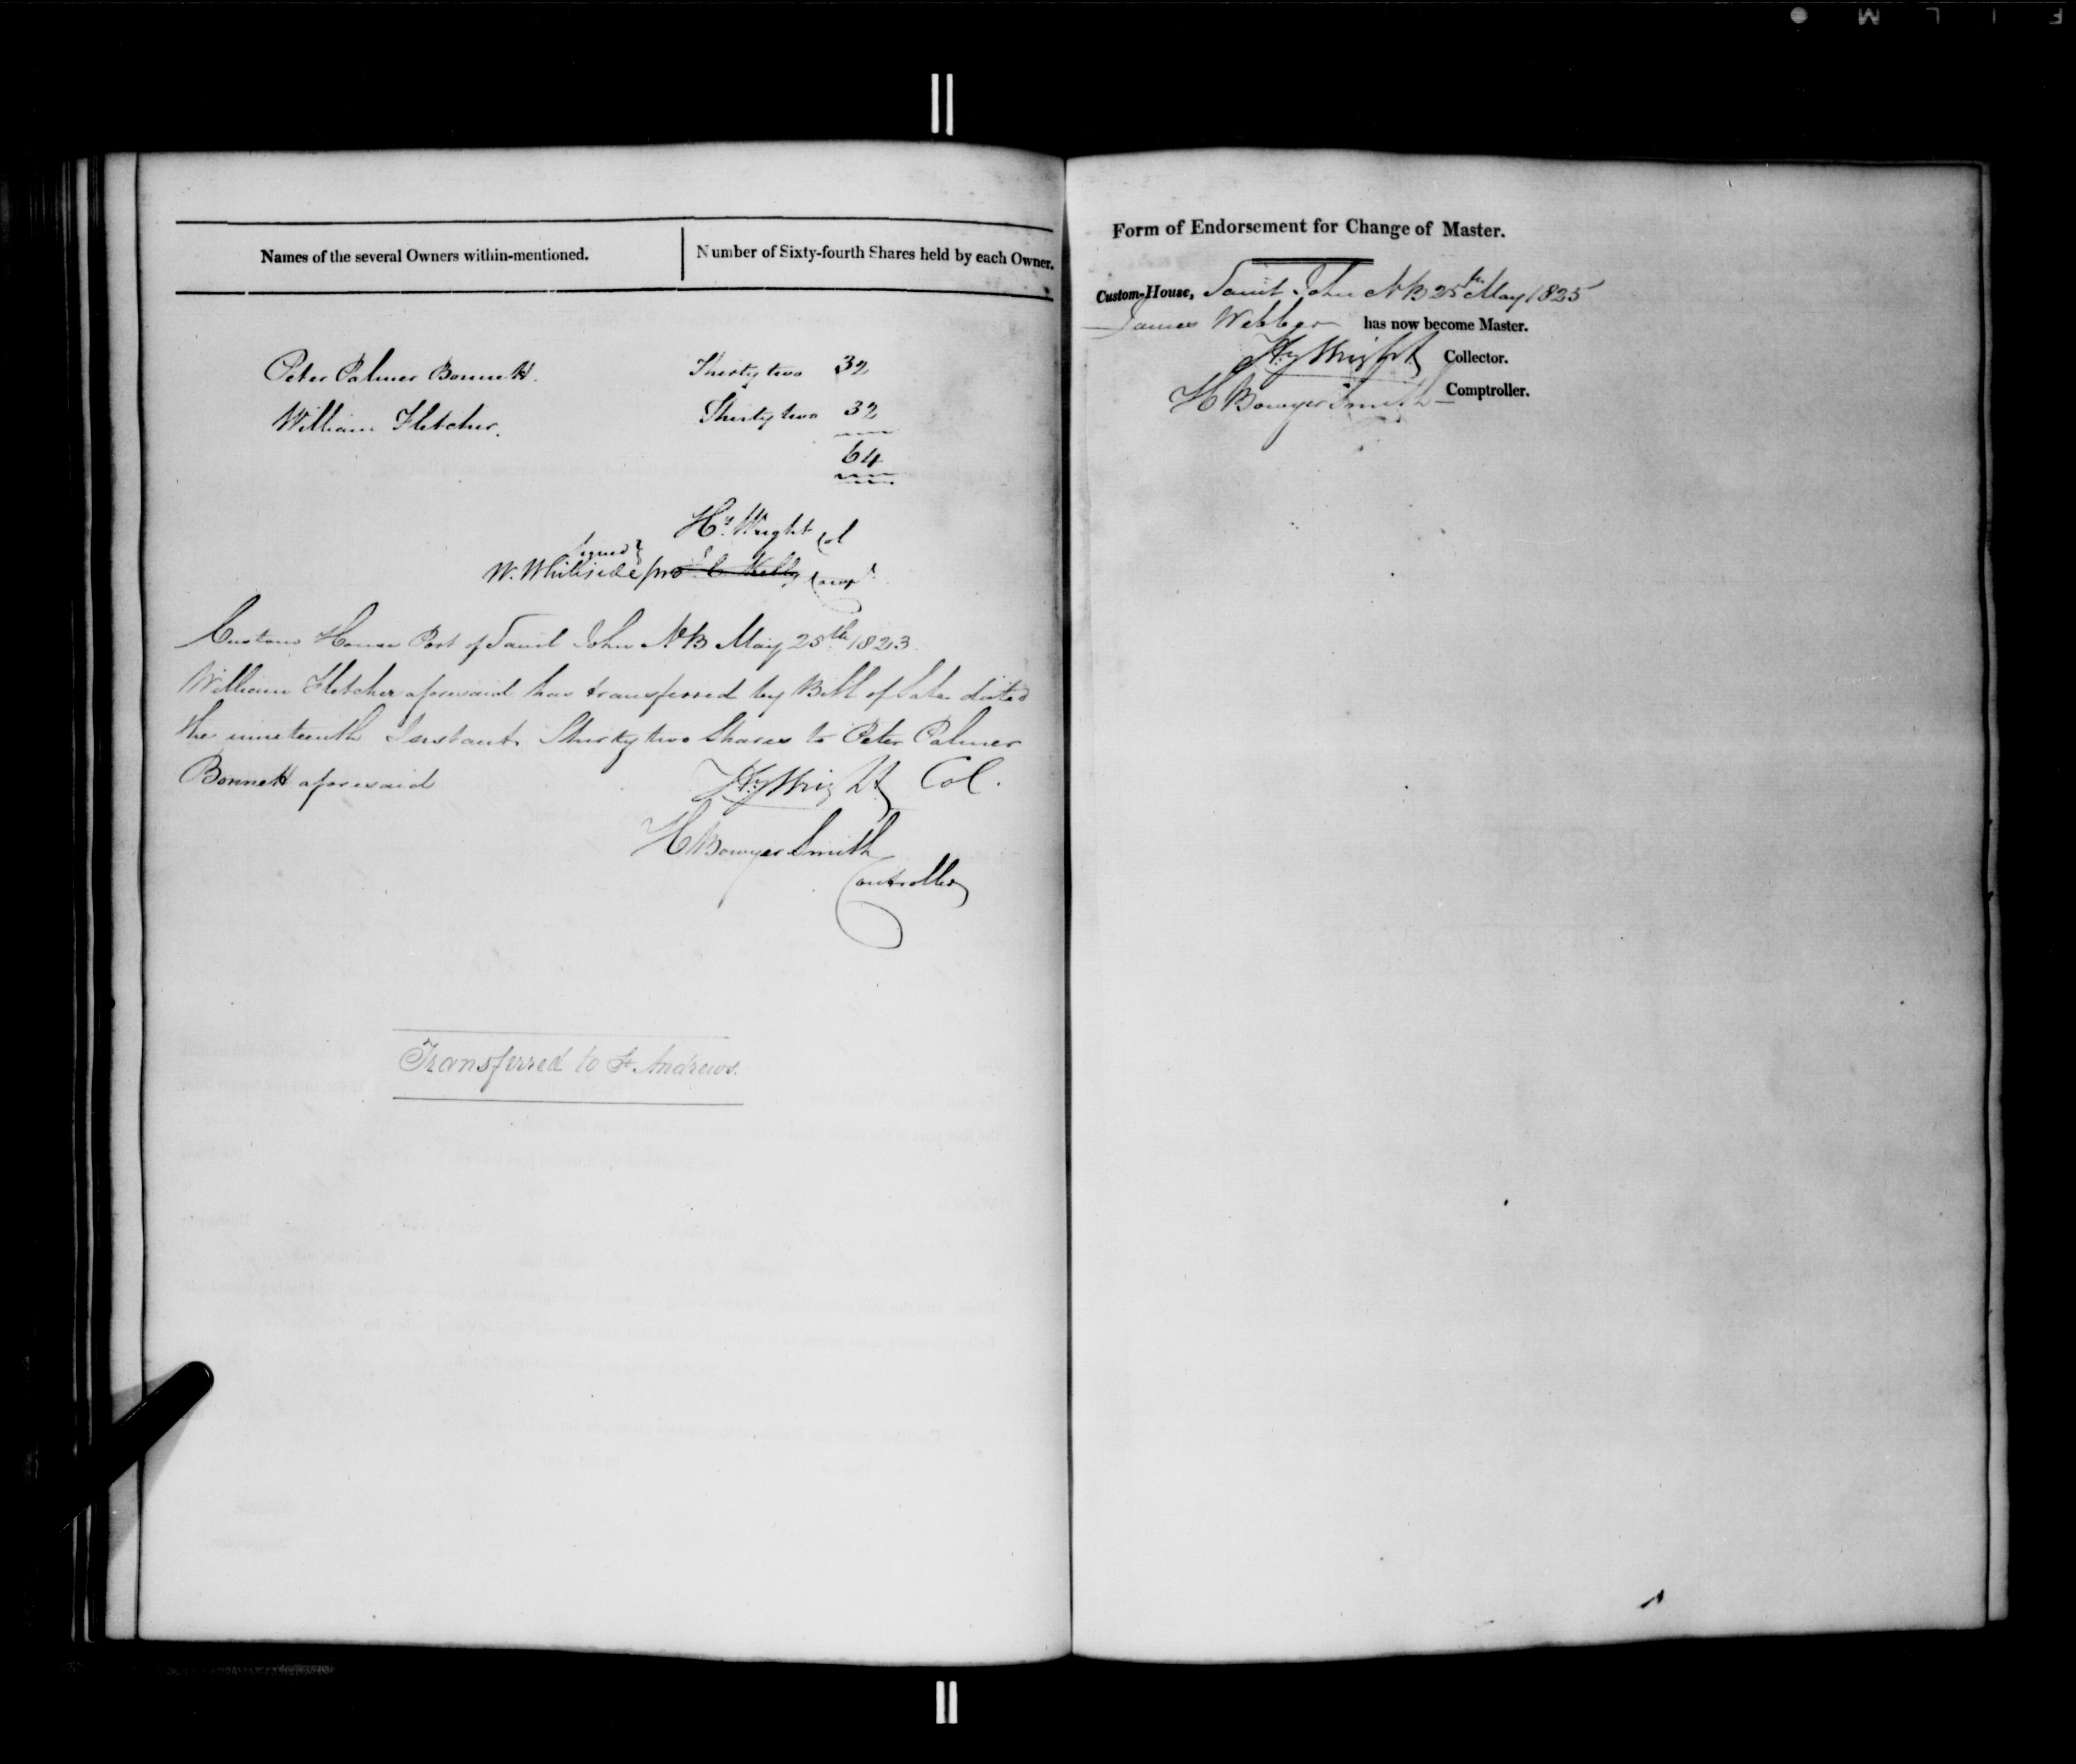 Names of the several Owners within-mentioned. Number of Sixty-fourth Shares held by each Owner.
Peter Palmer Bonnett. Thirty two 32
William Fletcher. Thirty two 32
64
Hy. Wright Col
Signed
W. Whiteside pro C Kelly Comp
Custom House Port of Saint John NB May 25th 1823.
William Fletcher aforesaid has transferred by Bill of Sale dated
the nineteenth Instant Thirty two Shares to Peter Palmer
Bonnett aforesaid Hy Wright Col.
H Bowyer Smith
Controller
Transferred to St. Andrews.
Form of Endorsement for Change of Master.
Custom-House, Saint John NB 25th May 1825
James Webber has now become Master.
Hy Wright Collector.
H Bowyer Smith Comptroller.
F I L M